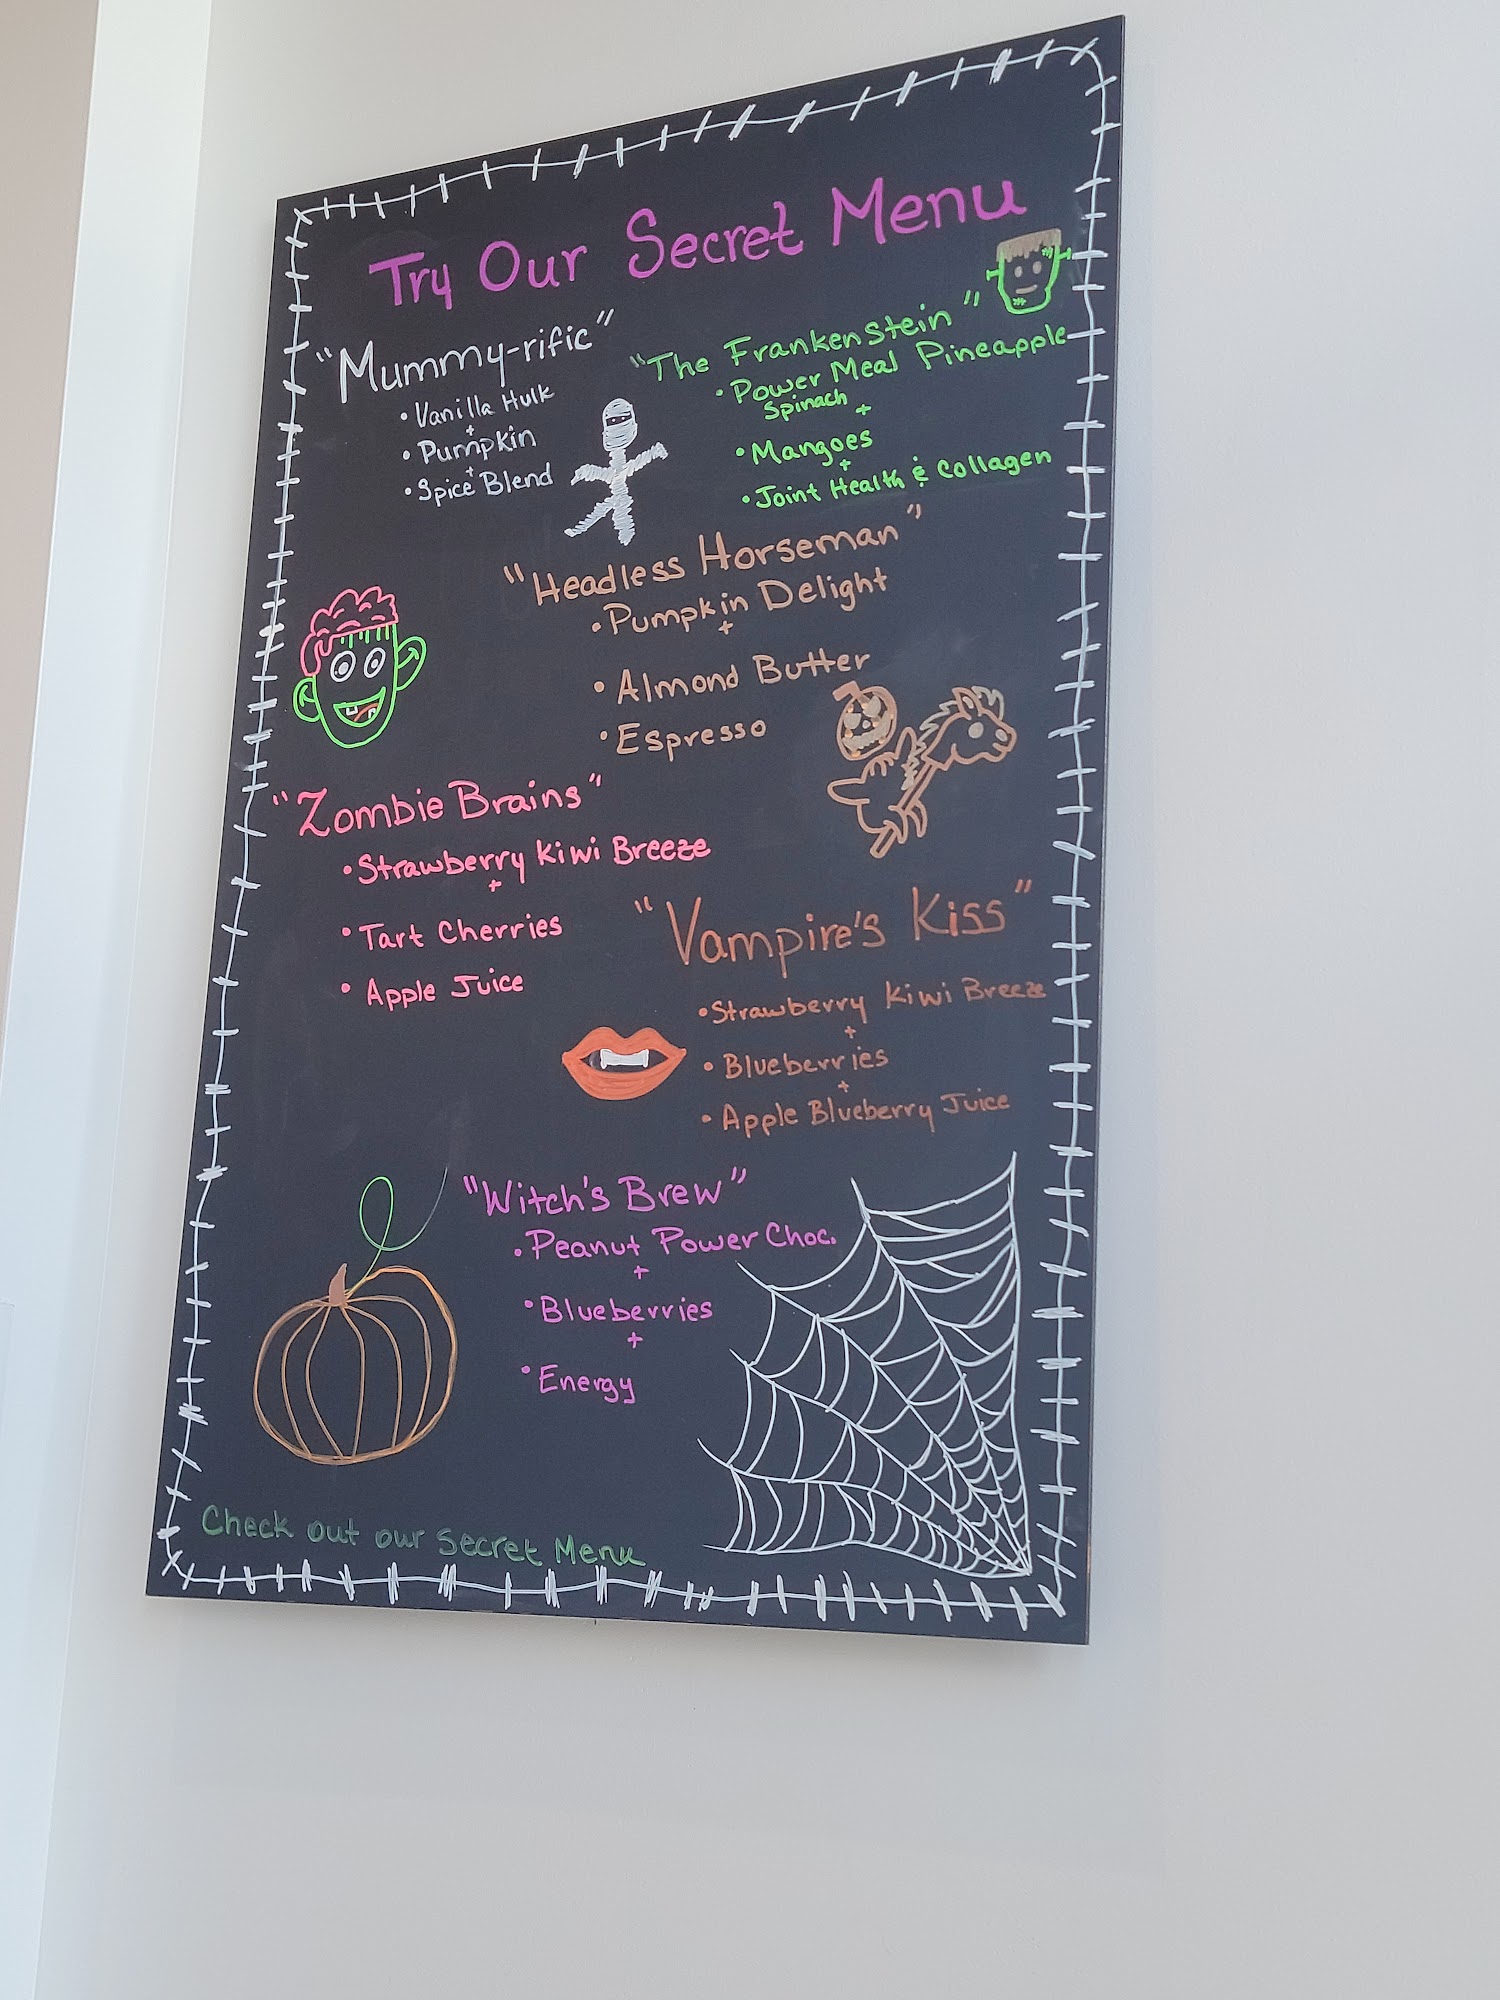 Try Our Secret Menu
"Mummy-rific"
• Vanilla Hulk
+
• Pumpkin
+
• Spice Blend
"The Frankenstein"
• Power Meal Pineapple
Spinach +
• Mangoes
+
• Joint Health & Collagen
"Headless Horseman"
• Pumpkin Delight
+
• Almond Butter
• Espresso
"Zombie Brains"
• Strawberry Kiwi Breeze
+
• Tart Cherries
• Apple Juice
"Vampire's Kiss"
• Strawberry Kiwi Breeze
+
• Blueberries
+
• Apple Blueberry Juice
"Witch's Brew"
• Peanut Power Choc.
+
• Blueberries
+
• Energy
Check out our Secret Menu